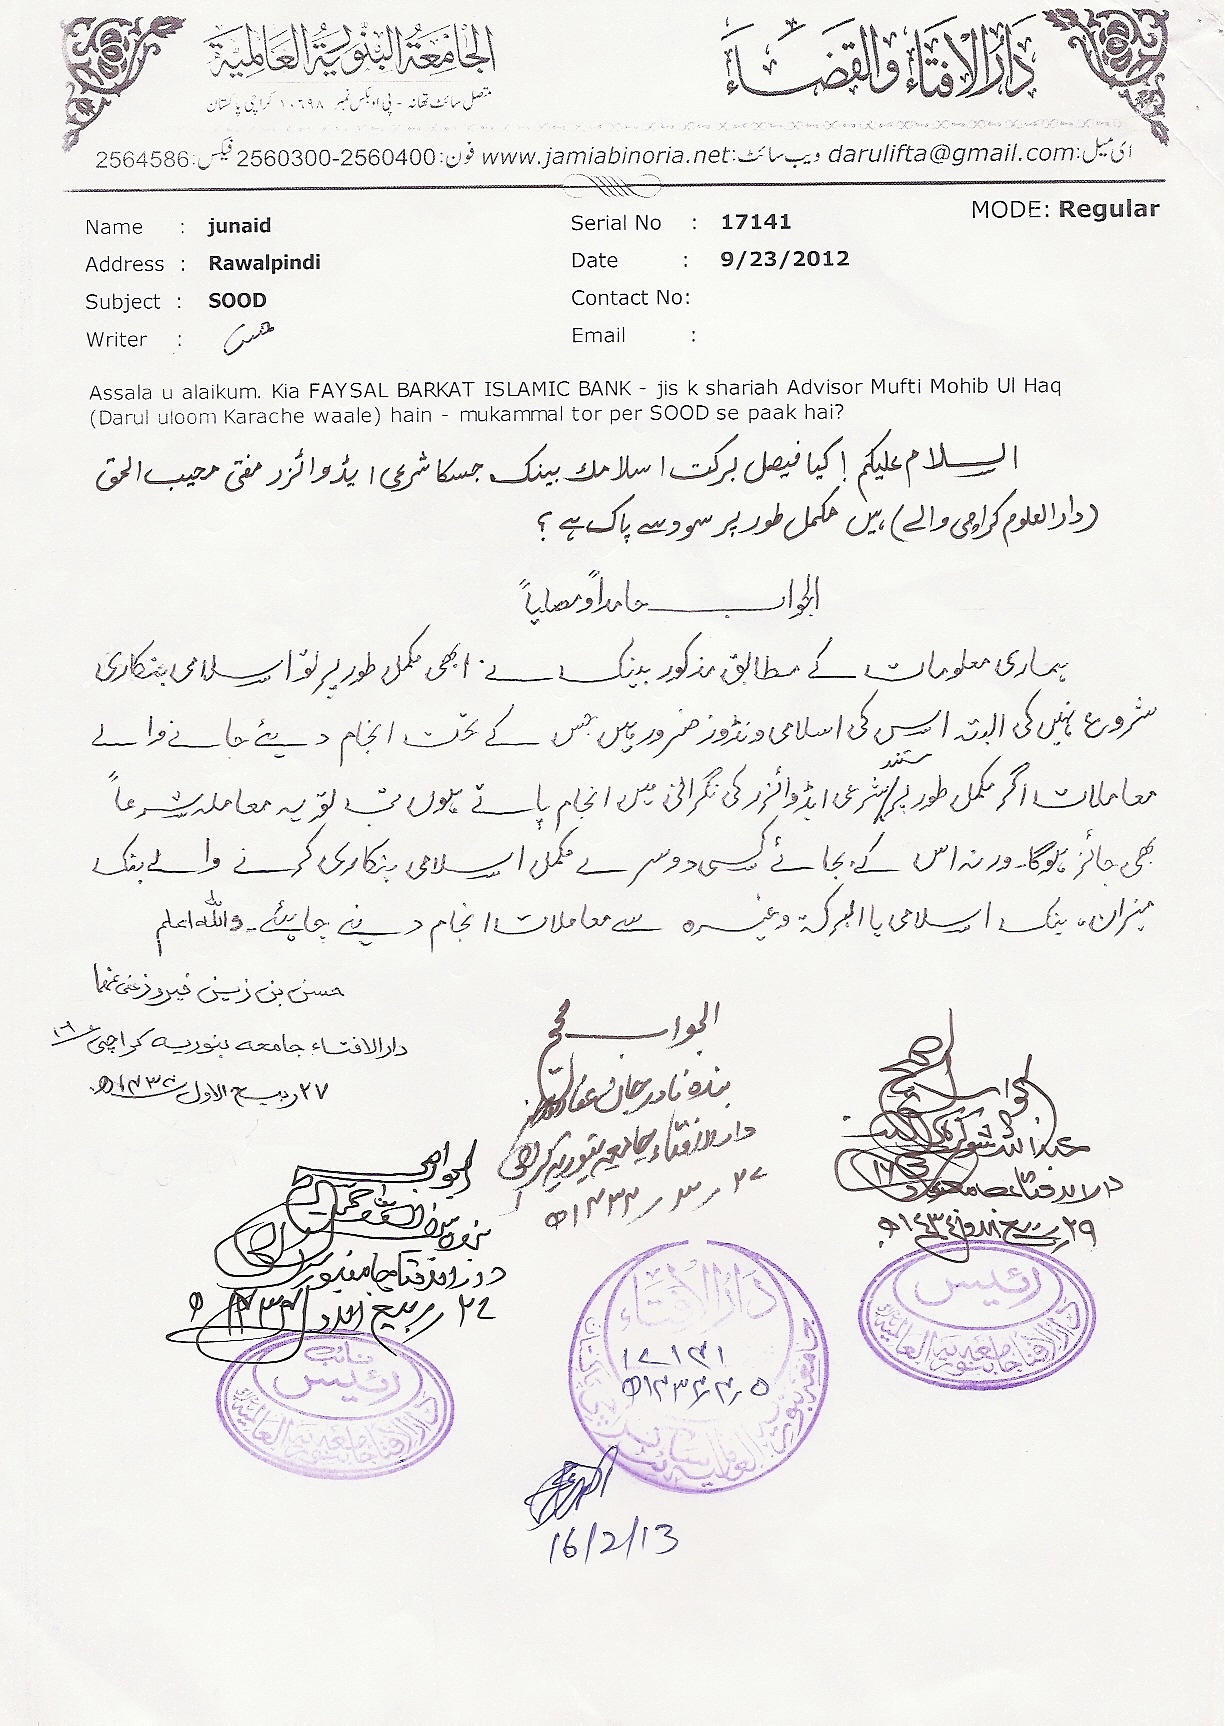 دار الافتاء والقضاء
الجامعة البنورية العالمية
متصل سائٹ تھانہ - پی او بکس نمبر ۱۰۶۹۸ کراچی پاکستان
ای میل: darulifta@gmail.com ویب سائٹ: www.jamiabinoria.net فون: 2560300-2560400 فیکس: 2564586
MODE: Regular
Name : junaid Serial No : 17141
Address : Rawalpindi Date : 9/23/2012
Subject : SOOD Contact No:
Writer : Email :
Assala u alaikum. Kia FAYSAL BARKAT ISLAMIC BANK - jis k shariah Advisor Mufti Mohib Ul Haq
(Darul uloom Karache waale) hain - mukammal tor per SOOD se paak hai?
السلام علیکم ! کیا فیصل برکت اسلامک بینک جسکا شرعی ایڈوائزر مفتی محیب الحق
(دارالعلوم کراچی والے) ہیں مکمل طور پر سود سے پاک ہے ؟
الجواب حامداً ومصلیاً
ہماری معلومات کے مطابق مذکور بینک نے ابھی مکمل طور پر تو اسلامی بنکاری
شروع نہیں کی البتہ اس کی اسلامی ونڈوز ضرور ہیں جس کے تحت انجام دیئے جانے والے
معاملات اگر مکمل طور پر مستند شرعی ایڈوائزر کی نگرانی میں انجام پاتے ہوں تب تو یہ معاملہ شرعاً
بھی جائز ہوگا۔ ورنہ اس کے بجائے کسی دوسرے مکمل اسلامی بنکاری کرنے والے بنک
میزان، بنک اسلامی یا البرکۃ وغیرہ سے معاملات انجام دینے چاہئے۔ واللہ اعلم
حسن بن زین فیروز عفی عنہما
دارالافتاء جامعہ بنوریہ کراچی ۱۶
۲۷ ربیع الاول ۱۴۳۴ھ
الجواب صحیح
بندہ نادر جان عفا اللہ عنہ
دارالافتاء جامعہ بنوریہ کراچی
۲۷ / ۳ / ۱۴۳۴ھ
الجواب صحیح
عبد اللہ شوکت
دارالافتاء جامعہ بنوریہ
۲۹ ربیع الاول ۱۴۳۴ھ
الجواب صحیح
دارالافتاء جامعہ بنوریہ
۲۷ ربیع الاول ۱۴۳۴ھ
رئیس
دارالافتاء جامعہ بنوریہ العالمیہ
دار الافتاء
۱۷۱۴۱
۵-۴-۱۴۳۴ھ
نائب
رئیس
دارالافتاء جامعہ بنوریہ العالمیہ
16/2/13